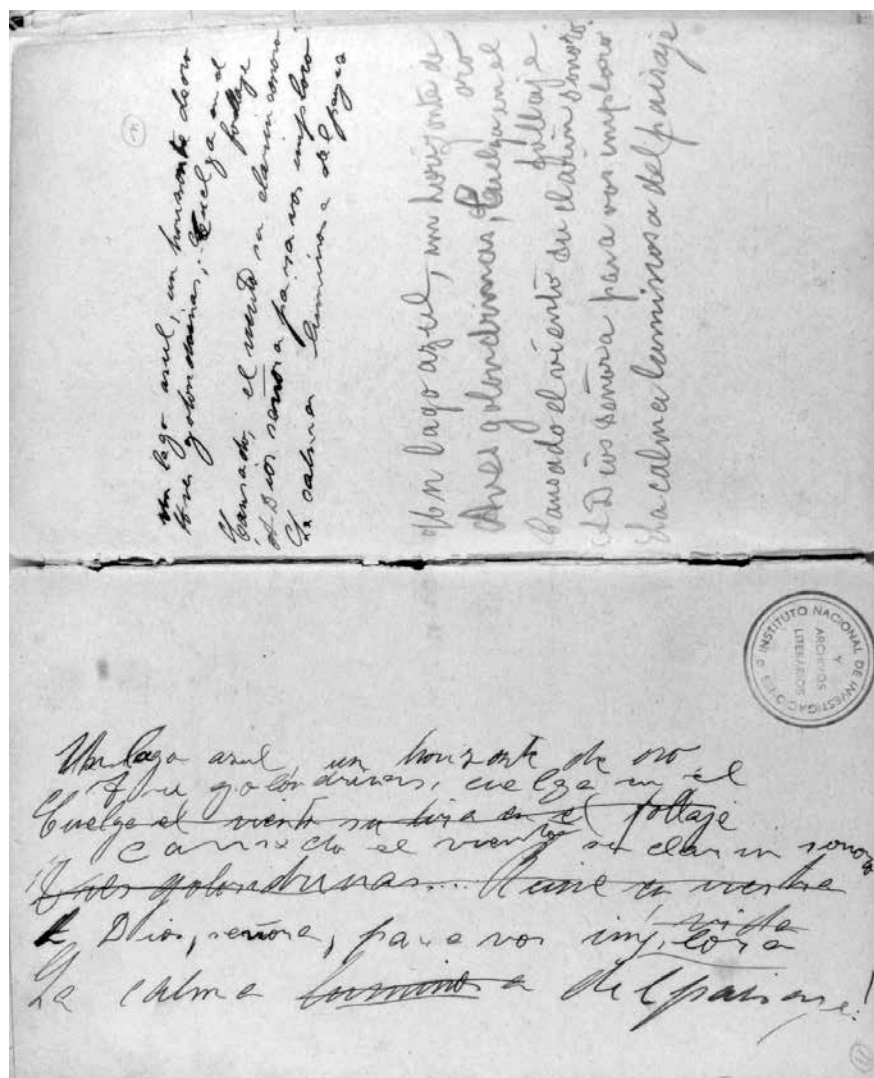 11
un lago azul, un horizonte de oro
tres golondrinas, Cuelga en el
follage
Cansado, el viento su clarin sonoro
A Dios señora para vos imploro
La calma luminosa del paisa
Un lago azul, un horizonte de
oro
Aves golondrinas, Cuelga en el
follaje
Cansado el viento su clarin sonoro.
A Dios señora para vos imploro
La calma luminosa del paisaje
INSTITUTO NACIONAL DE INVESTIGACIONES
Y
ARCHIVOS
LITERARIOS
Un lago azul un horizonte de oro
Tres golondrinas, cuelga en el
Cuelga el viento su lira en el follaje
Cansado el viento su clarin sonoro
Tres golondrinas... Reine en vuestra
vida
A Dios, señora, para vos imploro
La calma luminosa del paisaje!
11